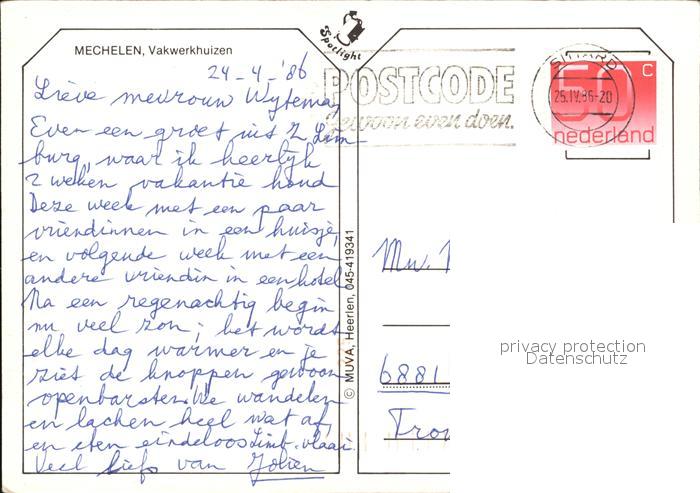 MECHELEN, Vakwerkhuizen
Spotlight
24-4-'86
Lieve mevrouw Wytema,
Even een groet uit Z. Lim-
burg, waar ik heerlijk
2 weken vakantie houd
Deze week met een paar
vriendinnen in een huisje,
en volgende week met een
andere vriendin in een hotel
Na een regenachtig begin
nu veel zon; het wordt
elke dag warmer en je
ziet de knoppen gewoon
openbarsten. We wandelen
en lachen heel wat af,
en eten eindeloos Limb. vlaai.
Veel liefs van Jolien
© MUVA, Heerlen, 045-419341
POSTCODE
gewoon even doen.
SITTARD
25.IV.86-20
50 C
nederland
Mw.
6881
privacy protection
Datenschutz